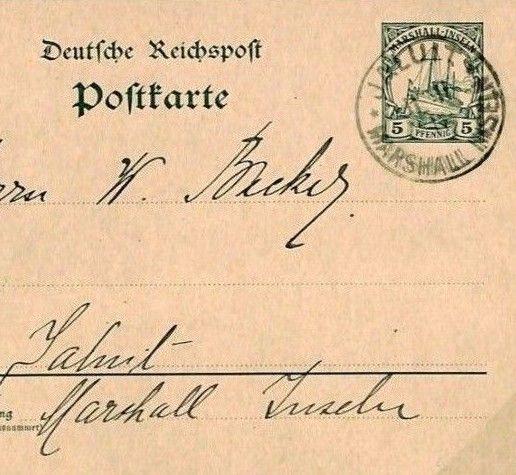 Deutsche Reichspost
Postkarte
MARSHALL-INSELN
5 PFENNIG 5
JALUIT
MARSHALL INSELN
W. Becker
Jaluit
Marshall Inseln